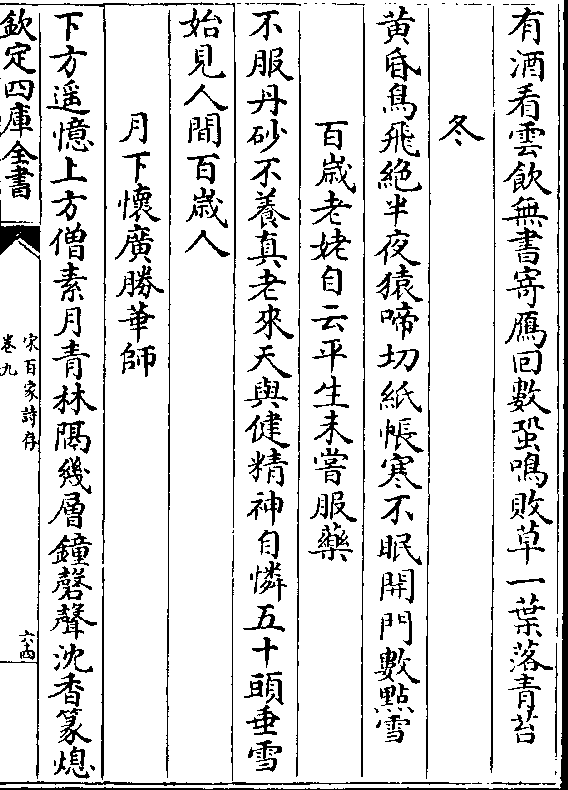 有酒看雲飲無書寄鴈回數蛩鳴敗草一葉落青苔
冬
黄昏鳥飛絶半夜猿啼切紙帳寒不眠開門數點雪
百歳老姥自云平生未嘗服藥
不服丹砂不養真老來天與健精神自憐五十頭垂雪
始見人間百歳人
月下懷廣勝華師
下方遥憶上方僧素月青林隔幾層鐘磬聲沈香篆熄
欽定四庫全書
宋百家詩存
卷九
六四